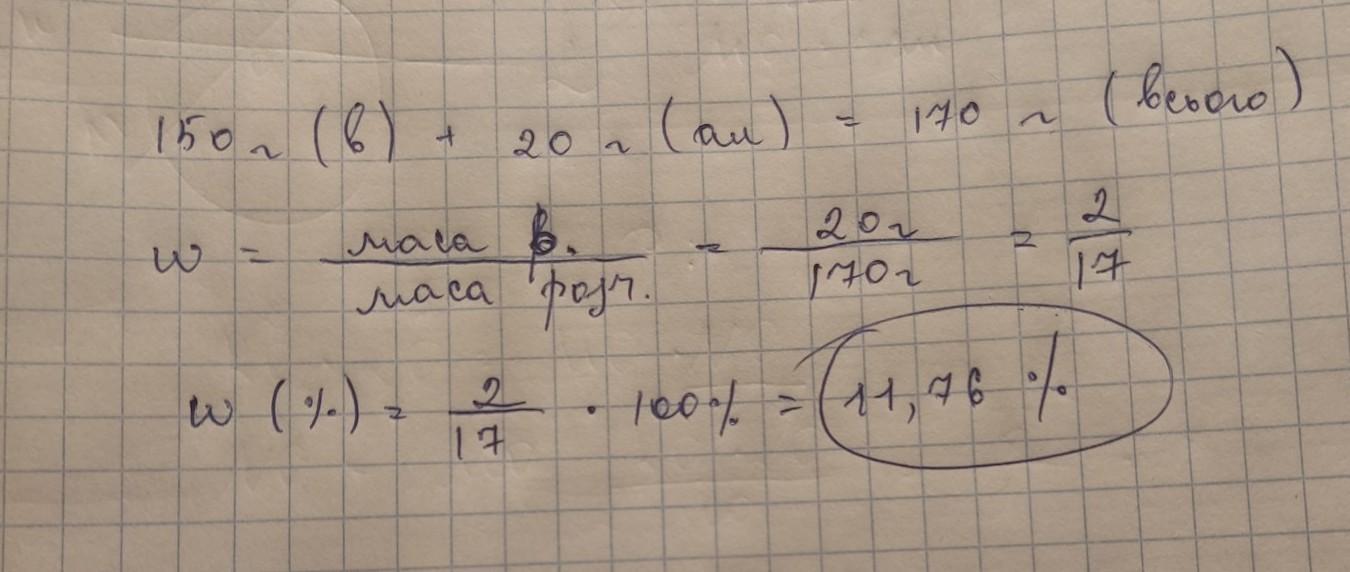 150 г (в) + 20 г (ам) = 170 г (всього)
w = маса в. / маса розч. = 20г / 170г = 2 / 17
w (%) = 2 / 17 · 100% = 11,76 %